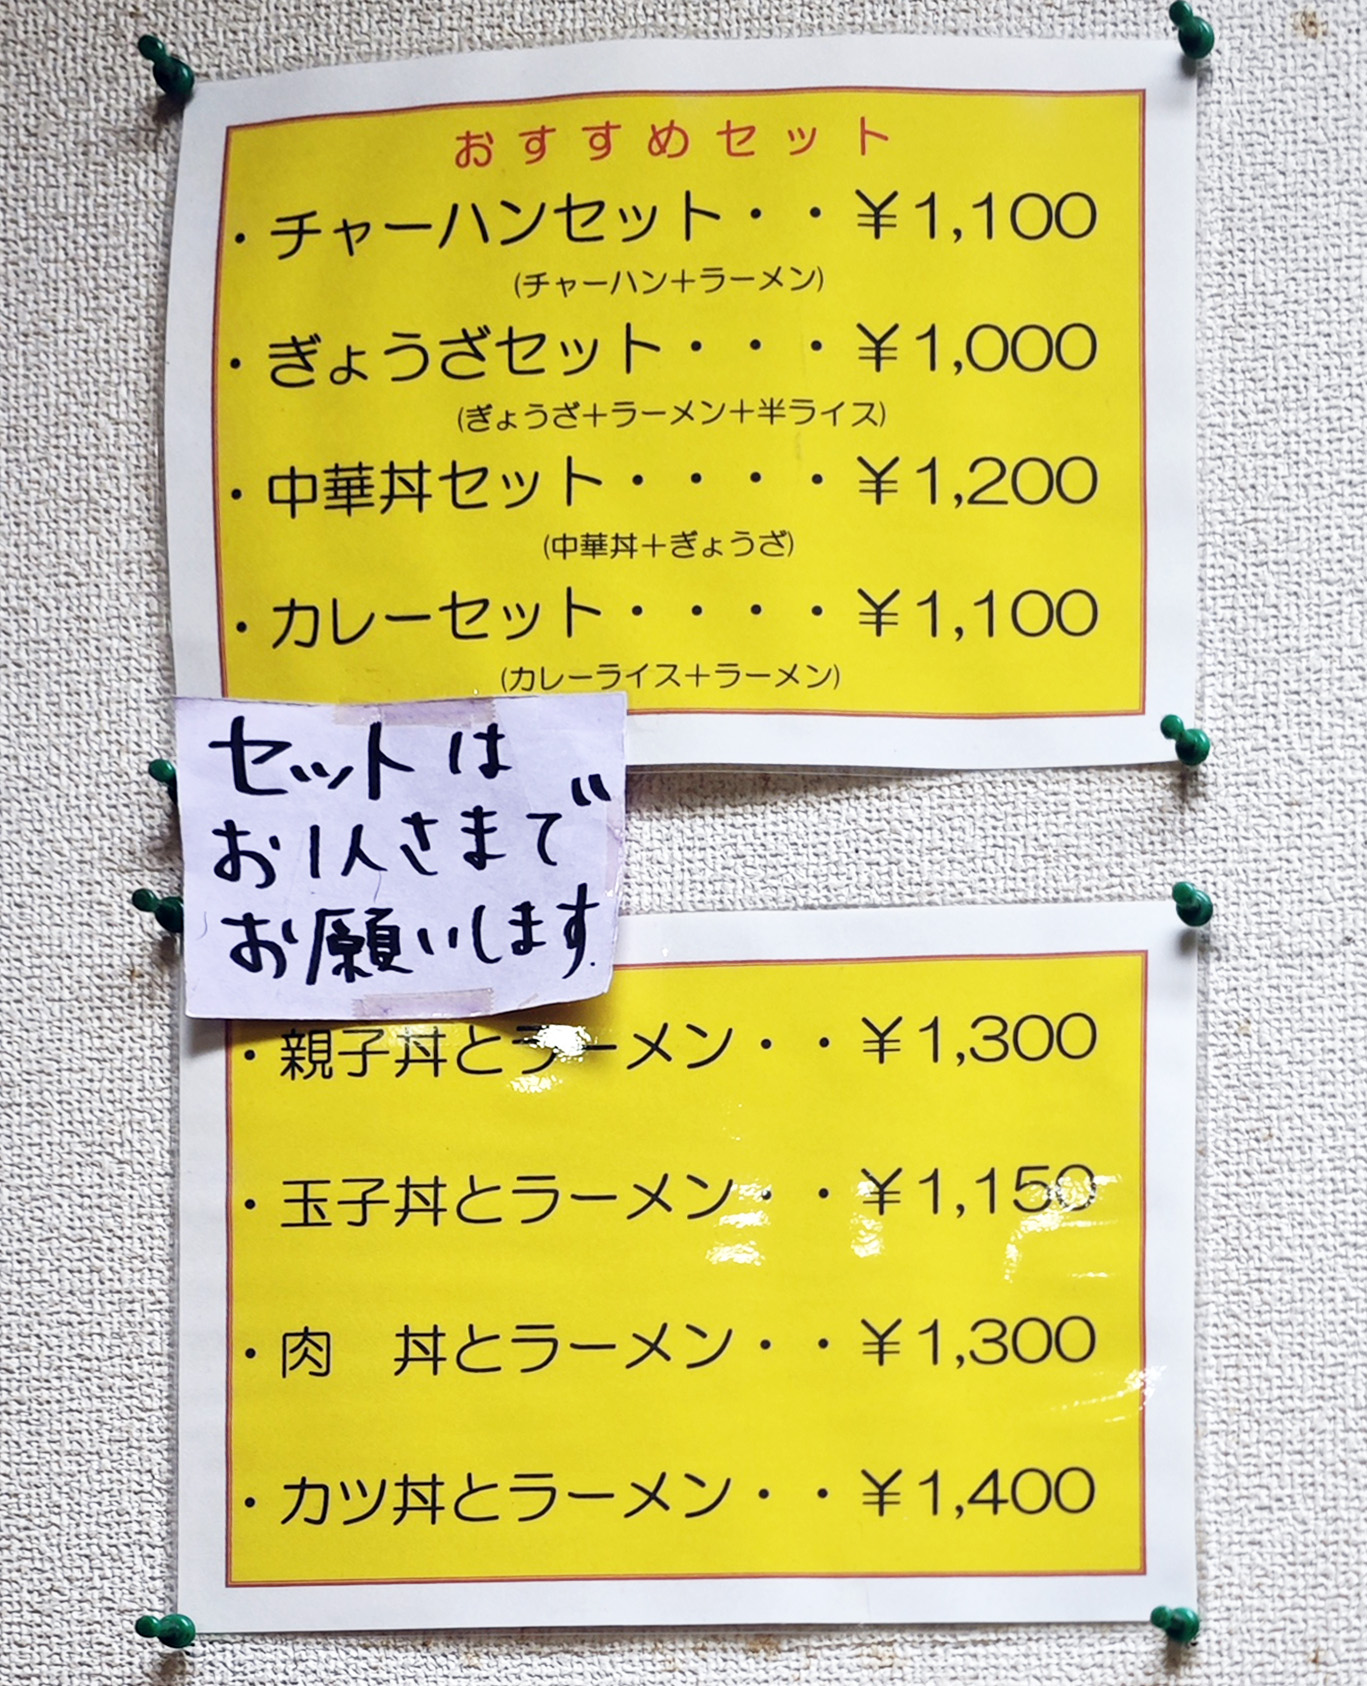 おすすめセット
・チャーハンセット・・￥1,100
(チャーハン＋ラーメン)
・ぎょうざセット・・・￥1,000
(ぎょうざ＋ラーメン＋半ライス)
・中華丼セット・・・・￥1,200
(中華丼＋ぎょうざ)
・カレーセット・・・・￥1,100
(カレーライス＋ラーメン)
セットは
お1人さまで
お願いします.
・親子丼とラーメン・・￥1,300
・玉子丼とラーメン・・￥1,150
・肉　丼とラーメン・・￥1,300
・カツ丼とラーメン・・￥1,400